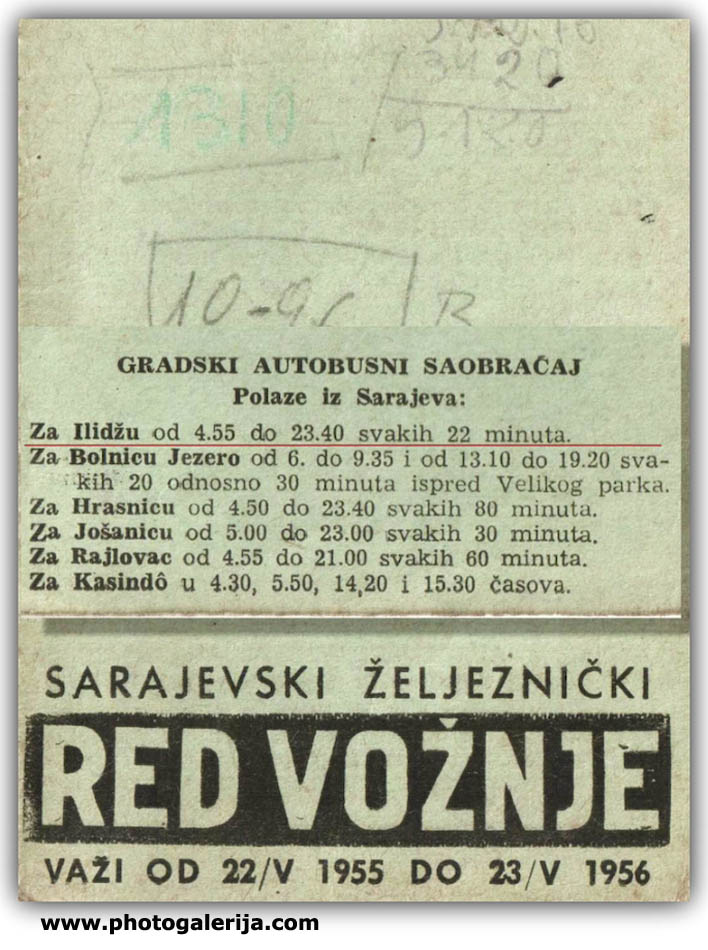 3420
5120
1310
GRADSKI AUTOBUSNI SAOBRAĆAJ
Polaze iz Sarajeva:
Za Ilidžu od 4.55 do 23.40 svakih 22 minuta.
Za Bolnicu Jezero od 6. do 9.35 i od 13.10 do 19.20 sva-
kih 20 odnosno 30 minuta ispred Velikog parka.
Za Hrasnicu od 4.50 do 23.40 svakih 80 minuta.
Za Jošanicu od 5.00 do 23.00 svakih 30 minuta.
Za Rajlovac od 4.55 do 21.00 svakih 60 minuta.
Za Kasindô u 4.30, 5.50, 14,20 i 15.30 časova.
SARAJEVSKI ŽELJEZNIČKI
RED VOŽNJE
VAŽI OD 22/V 1955 DO 23/V 1956
www.photogalerija.com